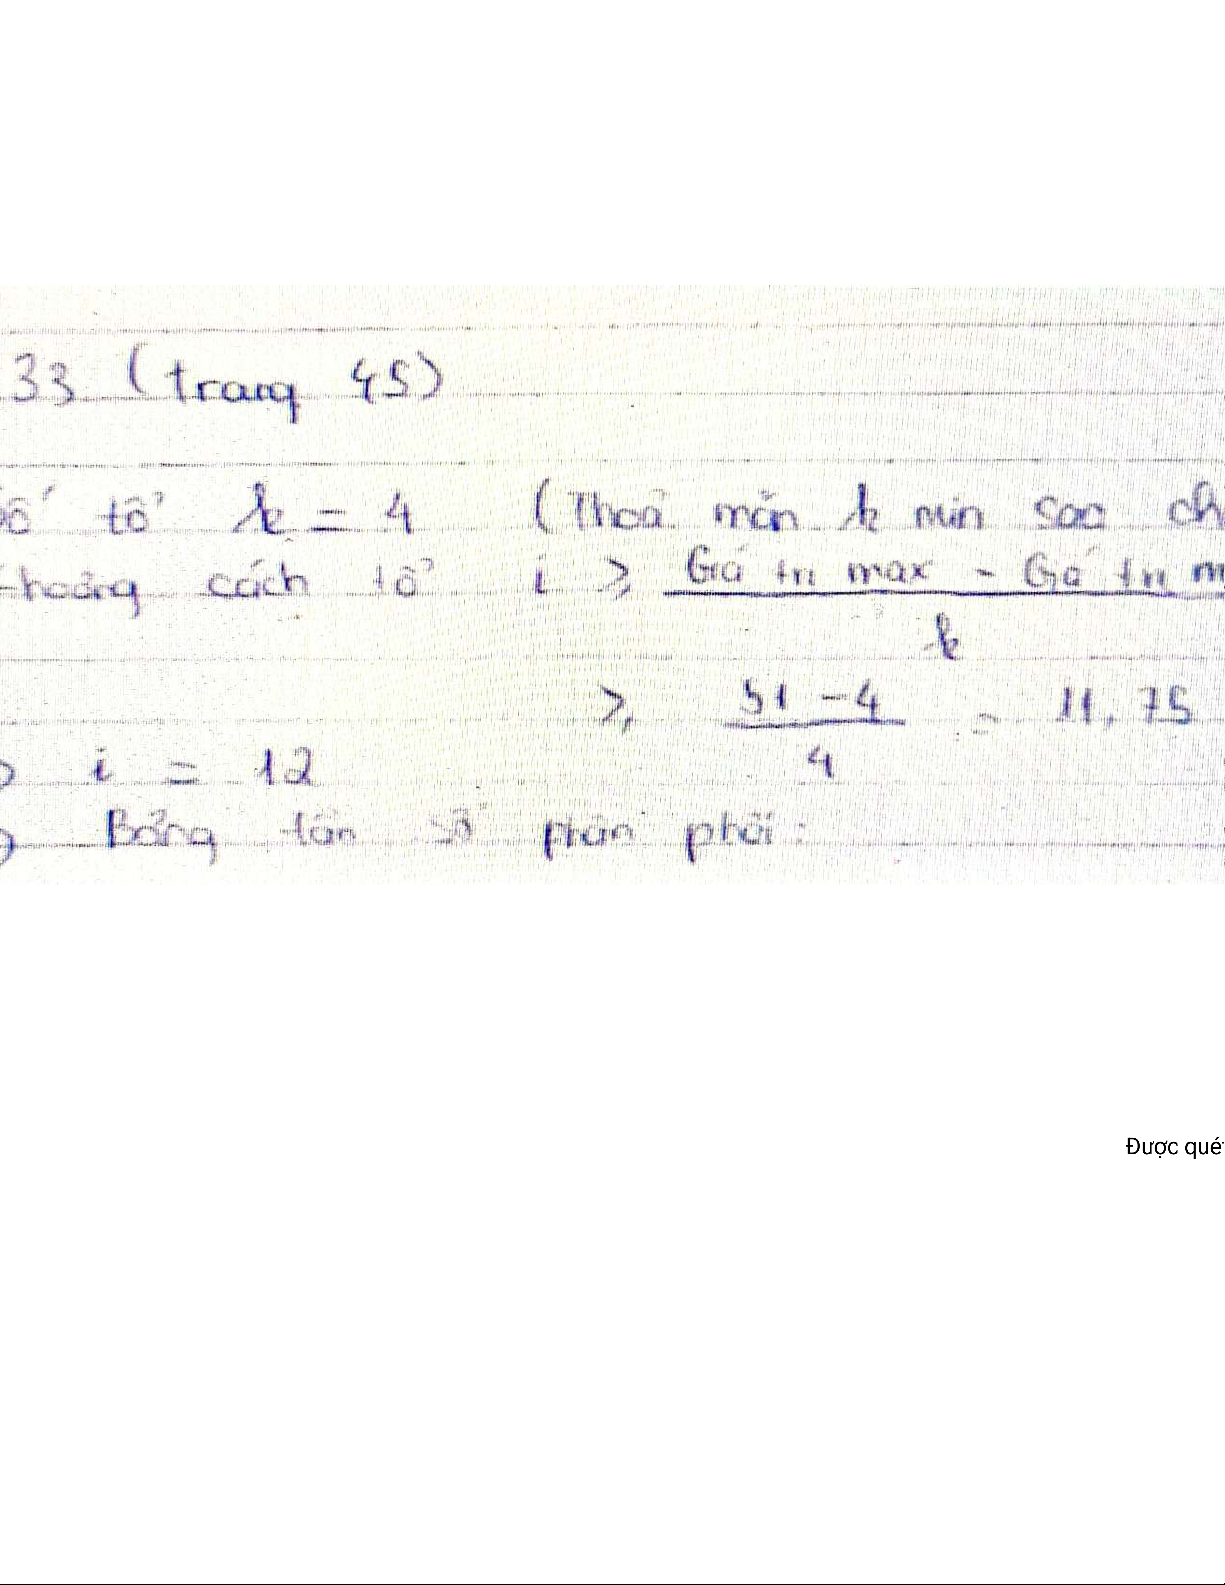 33 (trang 45)
Số tổ k = 4 (Thoả mãn k min sao ch
Khoảng cách tổ i ≥ Giá trị max - Giá trị m
k
≥ 51 - 4 = 11,75
4
i = 12
Bảng tần số phân phối:
Được quét